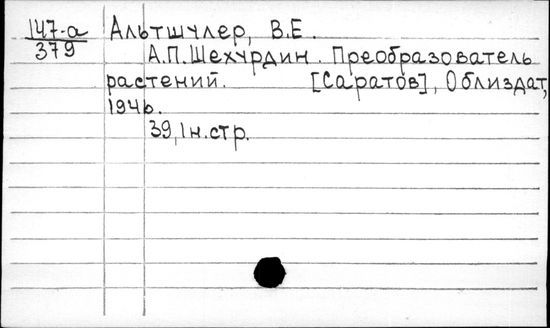 147-а Альтшулер, В.Е.
379 А.П.Шехурдин. Преобразователь
растений. [Саратов], Облиздат,
1946.
39,1н.стр.